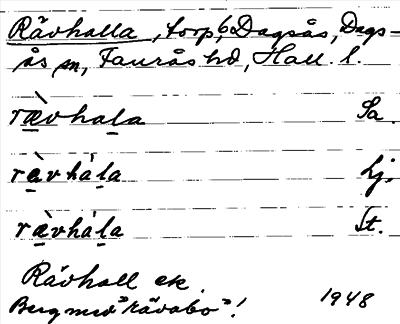 Rävhalla, torp, Dagsås, Dags-
ås sn, Faurås hd, Hall. l.
rævhala Sa.
ràvhàla Lj.
ràvhàla St.
Rävhall ek.
Berg med "rävabo"! 1948